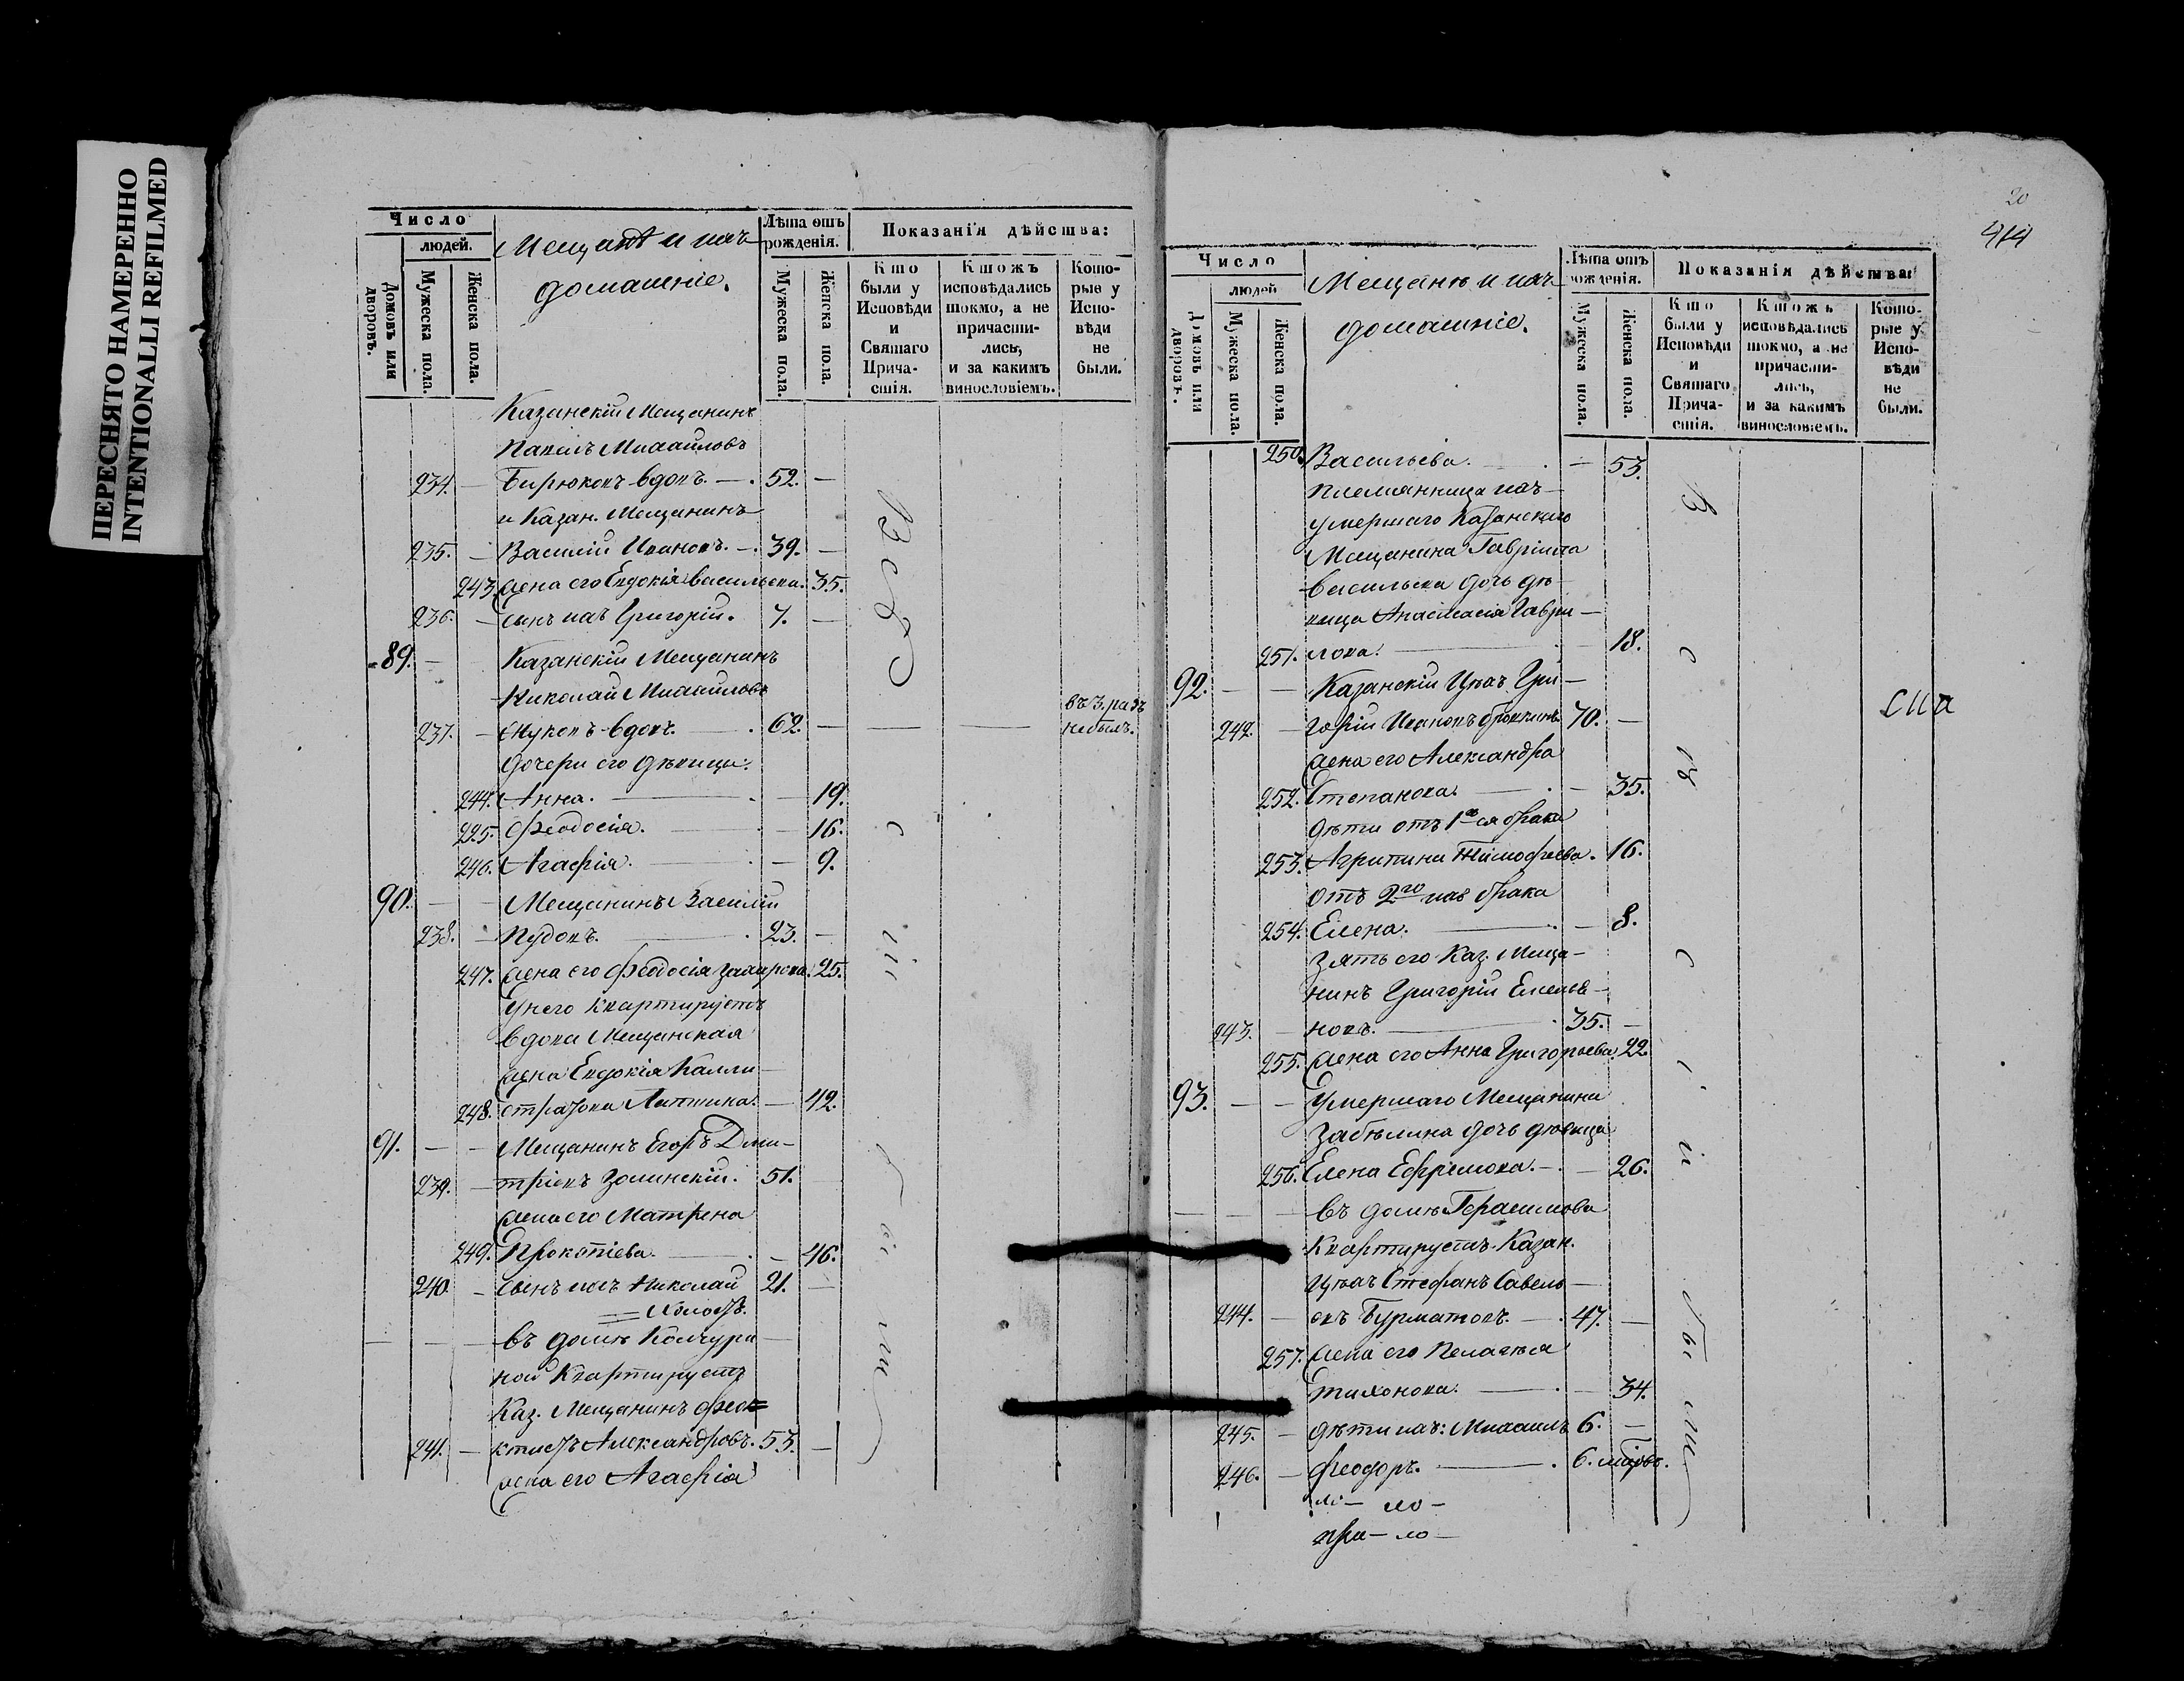 ПЕРЕСНЯТО НАМЕРЕННО
INTENTIONALLI REFILMED
Число
людей.
Домовъ или дворовъ.
Мужеска пола.
Женска пола.
Мещанѣ и ихъ
домашніе.
Лѣта отъ рожденія.
Мужеска пола.
Женска пола.
Показанія дѣйства:
Кто были у Исповѣди и Святаго Причастія.
Ктожъ исповѣдались токмо, а не причастились, и за какимъ винословіемъ.
Которые у Исповѣди не были.
Казанскій Мещанинъ
Павелъ Михайловъ
234. — Бирюковъ вдовъ. — . 52. —
и Казан. Мещанинъ
235. — Василій Ивановъ. — . 39. —
243. жена его Евдокія Васильева. 35.
236. — сынъ ихъ Григорій. 7. —
89. — Казанскій Мещанинъ
Николай Михайловъ
въ 3. разъ
237. — Жуковъ вдовъ. — . 62. — — — небылъ.
дочери его дѣвицы:
244. Анна. — . — 19.
225. Феодосія. — . — 16.
246. Агафія. — . — 9.
90. — — Мещанинъ Василій
238. — Пудовъ. — . 23. —
247. жена его Феодосія Захарова. 25.
У него квартируетъ
вдова Мещанская
жена Евдокія Калли—
248. стратова Лаптина. — 42.
91. — — Мещанинъ Егоръ Дми—
239. — тріевъ Золинскій. 51.
жена его Матрена
249. Прокопіева. — . — 46.
240. — сынъ ихъ Николай 21. —
— холостъ.
— — — въ домѣ Колчури—
ной Квартируетъ
Каз. Мещанинъ Фео=
241. — ктистъ Александровъ. 53. —
жена его Агафія
Всѣ
20
414
Число
людей
Домовъ или дворовъ.
Мужеска пола.
Женска пола.
Мещанѣ и ихъ
домашніе.
Лѣта отъ рожденія.
Мужеска пола.
Женска пола.
Показанія дѣйства:
Кто были у Исповѣди и Святаго Причастія.
Ктожъ исповѣдались токмо, а не причастились, и за какимъ винословіемъ.
Которые у Исповѣди не были.
250. Васильева. — . — 53.
племянница ихъ —
умершаго Казанскаго
Мещанина Гавріила
Васильева дочь дѣ—
вица Анастасія Гаври—
251. лова. — . — 18.
92. — — Казанскій Цѣхъ Гри—
242. — горій Ивановъ 70. —
жена его Александра
252. Степанова. — . — 35.
дѣти отъ 1го ея брака
253. Агрипина Тимофеева. 16.
отъ 2го ихъ брака
254. Елена. — . — 8.
зять его Каз. Меща—
нинъ Григорій Емелья—
243. — новъ. — . 35. —
255. жена его Анна Григорьева. 22.
93. — — Умершаго Мещанина
Забѣлина дочь дѣвица
256. Елена Ефремова. — . — 26.
— — — въ домѣ Герасимова
Квартируетъ Казан.
цѣхъ Стефанъ Савель—
244. — евъ Бурматовъ. — . 47. —
257. жена его Пелагѣя
Тихонова. — . — 34.
245. — дѣти ихъ: Михаилъ 6. —
246. — Феодоръ. — . 6.